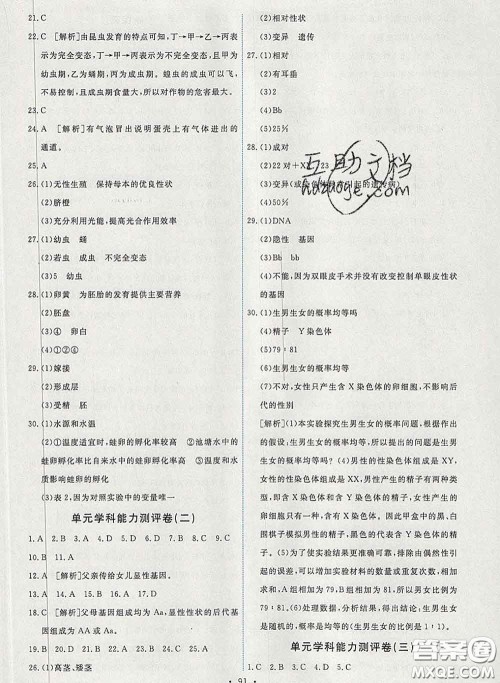 21. C
22. C　[解析]由昆虫发育的特点可知，丁→甲→乙→丙表
示为完全变态，丁→甲→丙表示不完全变态，且甲为
幼虫期，乙为蛹期，丙为成虫期。蝗虫的成虫可以飞，
不易控制，且成虫期食量大，所以对作物的危害大。
23. C
24. A　[解析]有气泡冒出说明蛋壳上有气体进出的
通道。
25. A
26. (1)无性生殖　保持母本的优良性状
(2)脐橙
(3)充分利用光能，提高光合作用效率
27. (1)幼虫　蛹
(2)若虫　成虫　不完全变态
(3)5　幼虫
28. (1)卵黄　为胚胎的发育提供主要营养
(2)胚盘
(3)④　卵白
(4)①②③④
29. (1)嫁接
(2)形成层
(3)受精　胚
30. (1)水源和水温
(2)①温度适宜时，蛙卵的孵化率较高　②池塘水中的
蛙卵孵化率比自来水中的蛙卵孵化率高　③温度和水
质影响蛙卵的孵化
(3)表2，因为对照实验中的变量唯一
单元学科能力测评卷(二)
1. A　2. B　3. D　4. A　5. D　6. C　7. A　8. D　9. B
10. B　11. A
12. A　[解析]父亲传给女儿显性基因。
13. B　14. D　15. D　16. A　17. D
18. C　[解析]父母基因组成均为Aa，显性性状的后代基
因组成为AA或Aa。
19. B　20. D　21. C　22. B　23. A　24. A　25. B
26. (1)高茎、矮茎
(2)相对性状
(3)变异　遗传
27. (1)相对
(2)有耳垂
(3)2
(4)Bb
(5)25%
28. (1)成对
(2)22对+X　23
(3)变异
29. (1)DNA
(2)隐性　基因
(3)Bb　bb
(4)不能，因为双眼皮手术并没有改变控制单眼皮性状
的基因
30. (1)生男生女的概率均等吗
(4)精子　Y染色体
(5)79∶81
(6)生男生女的概率均等
(7)不行，女性只产生含X染色体的卵细胞，不影响后
代的性别
[解析](1)本实验探究生男生女的概率问题，根据假设
是生男生女的概率均等，所以提出的问题是生男生女
的概率均等吗。(4)男性的性染色体组成是XY，女性
的性染色体组成是XX，因此男性产生的精子有两种
类型，即含X染色体的和含Y染色体的，而女性只产
生一种含X染色体的卵细胞，黑白围棋子各10枚，白
围棋子模拟男性的精子，其中黑棋子表示含Y染色体
的精子。(5)为了使实验结果更准确，尽可能减少偶然性
引起的误差，可以增加实验材料的数量或重复次数，根
据甲、丙、丁三个组4次实验数据相加，则男∶女约为
79∶81。(6)处理数据，分析结果。由于生男生女
是随机的，概率为(生男生女的比例是1∶1)。
单元学科能力测评卷(三)
1. C　2. D　3. C　4. B　5. D　6. C　7. D
91
互助文档
huzuoge.com
答案圈
MXQE.COM